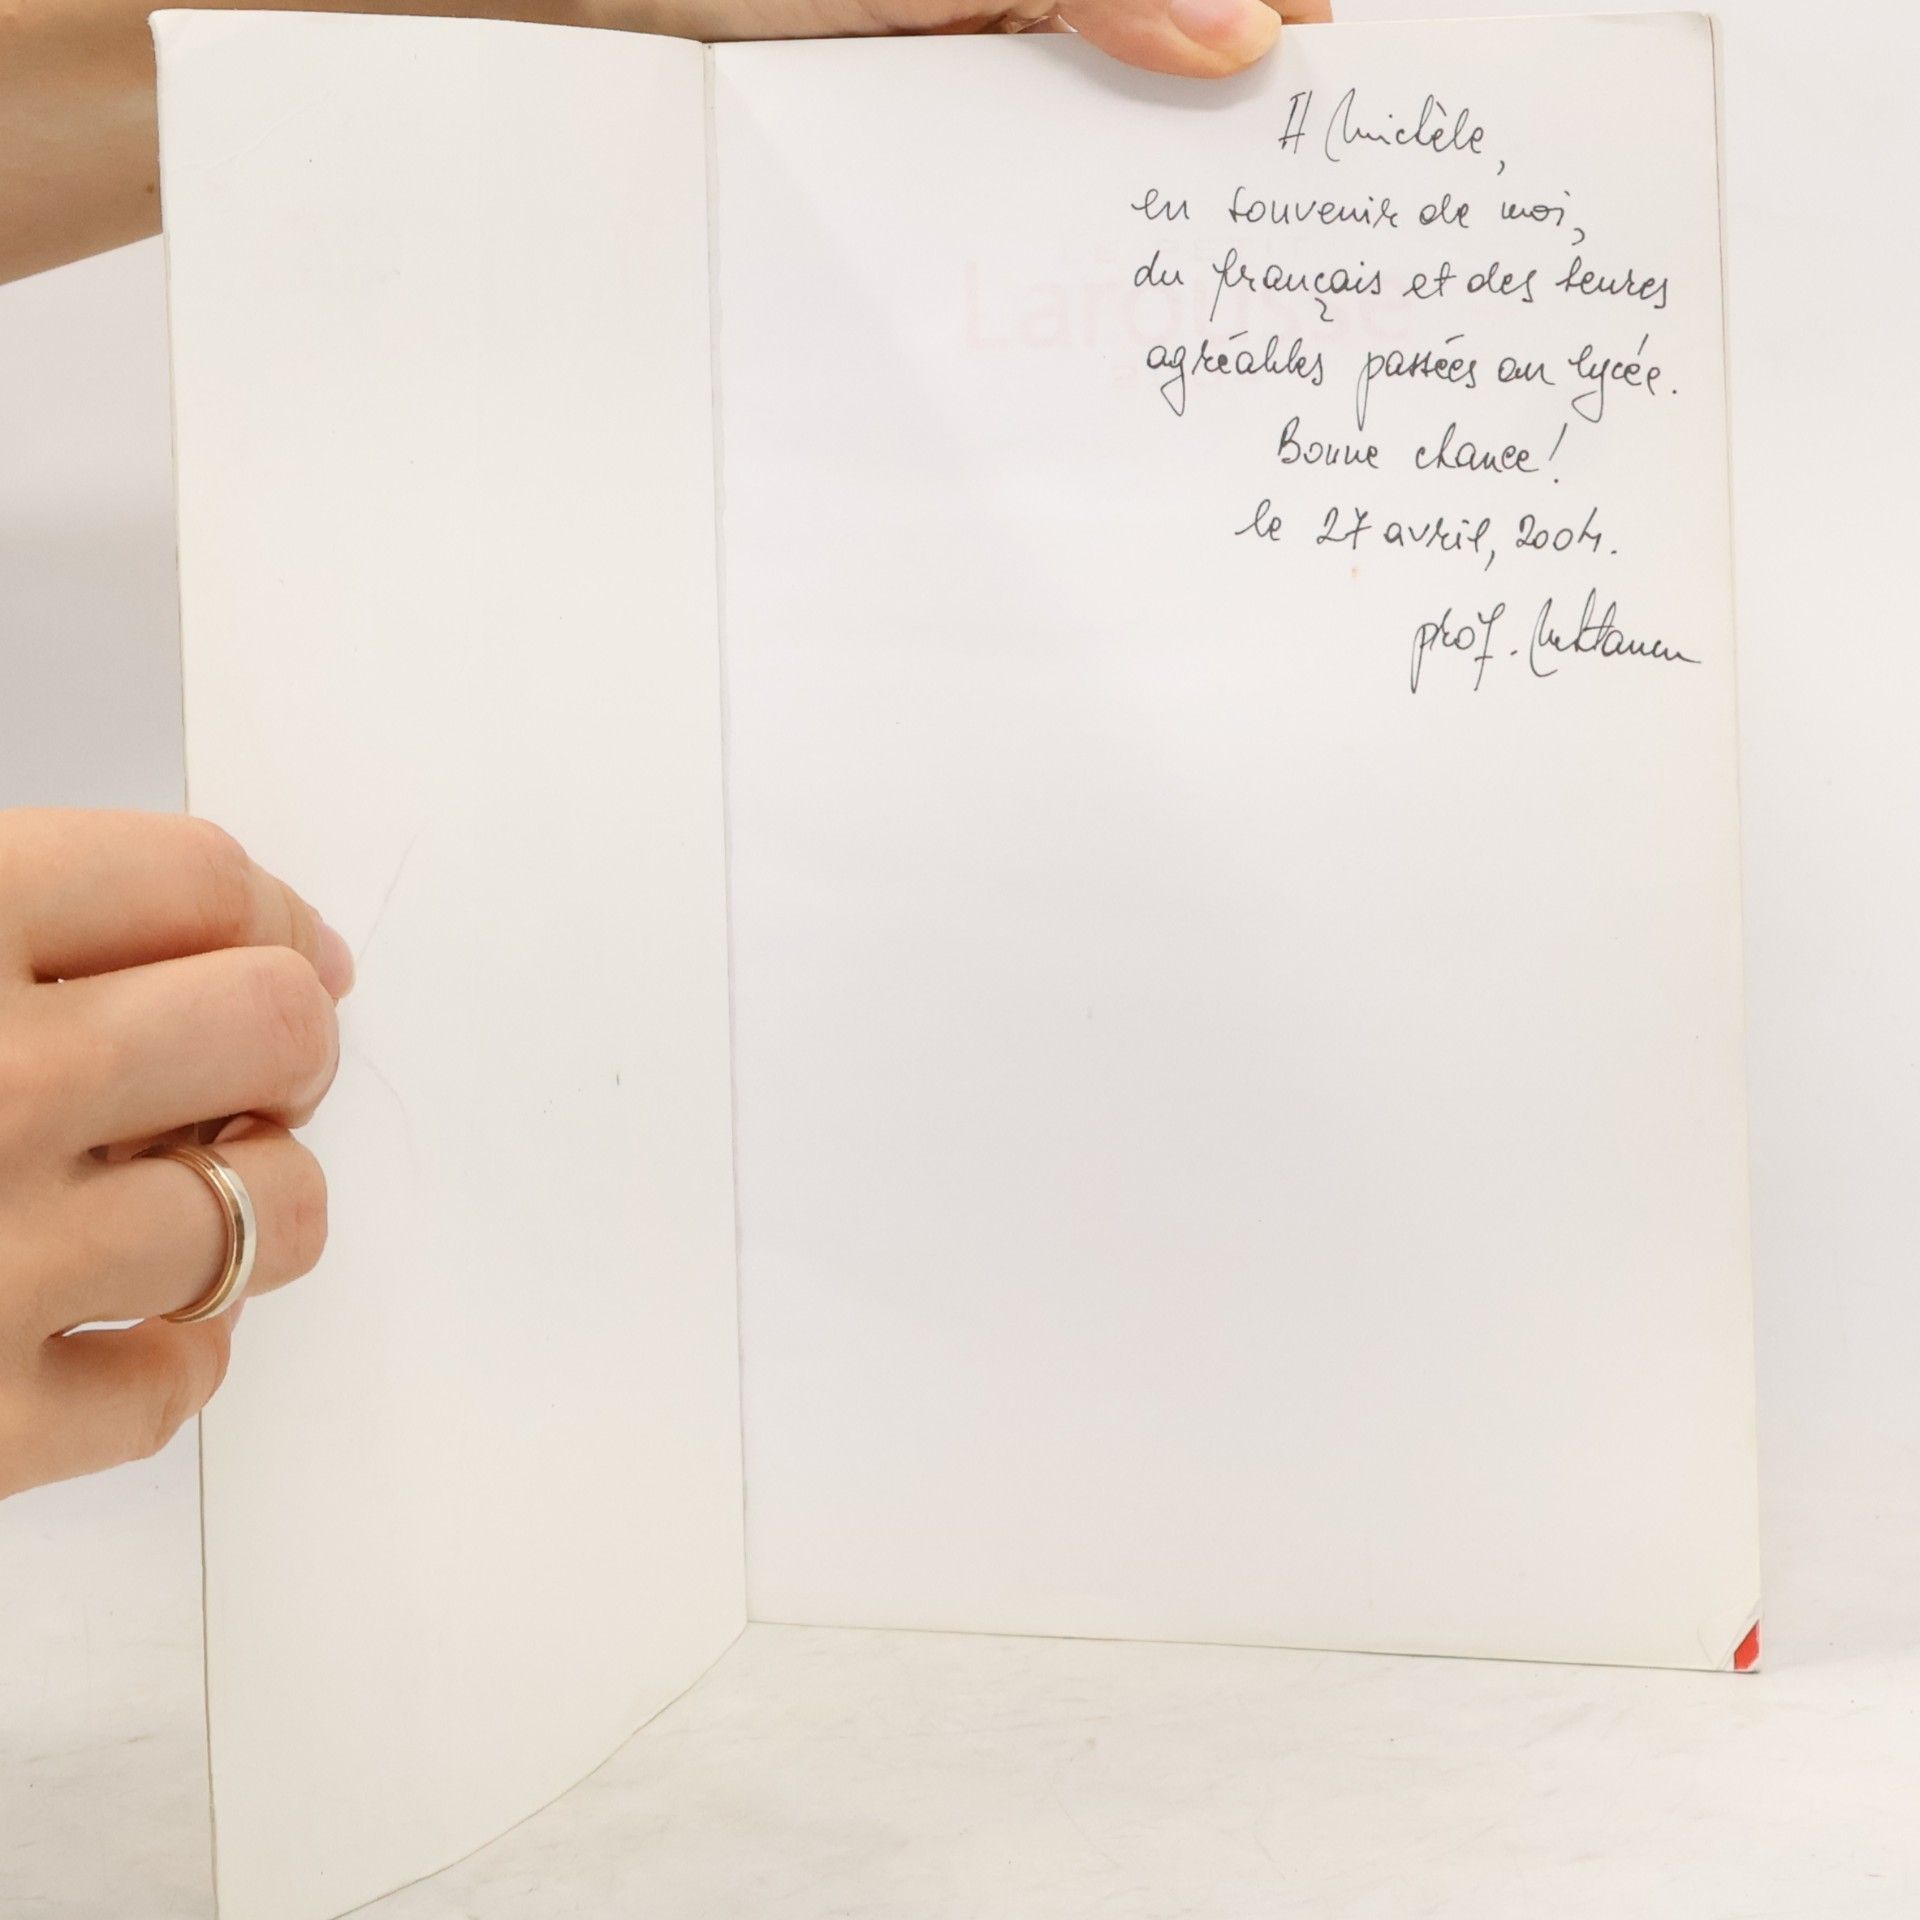 A Michèle,
en souvenir de moi,
du français et des heures
agréables passées au lycée.
Bonne chance!
le 27 avril, 2004.
prof.
Larousse